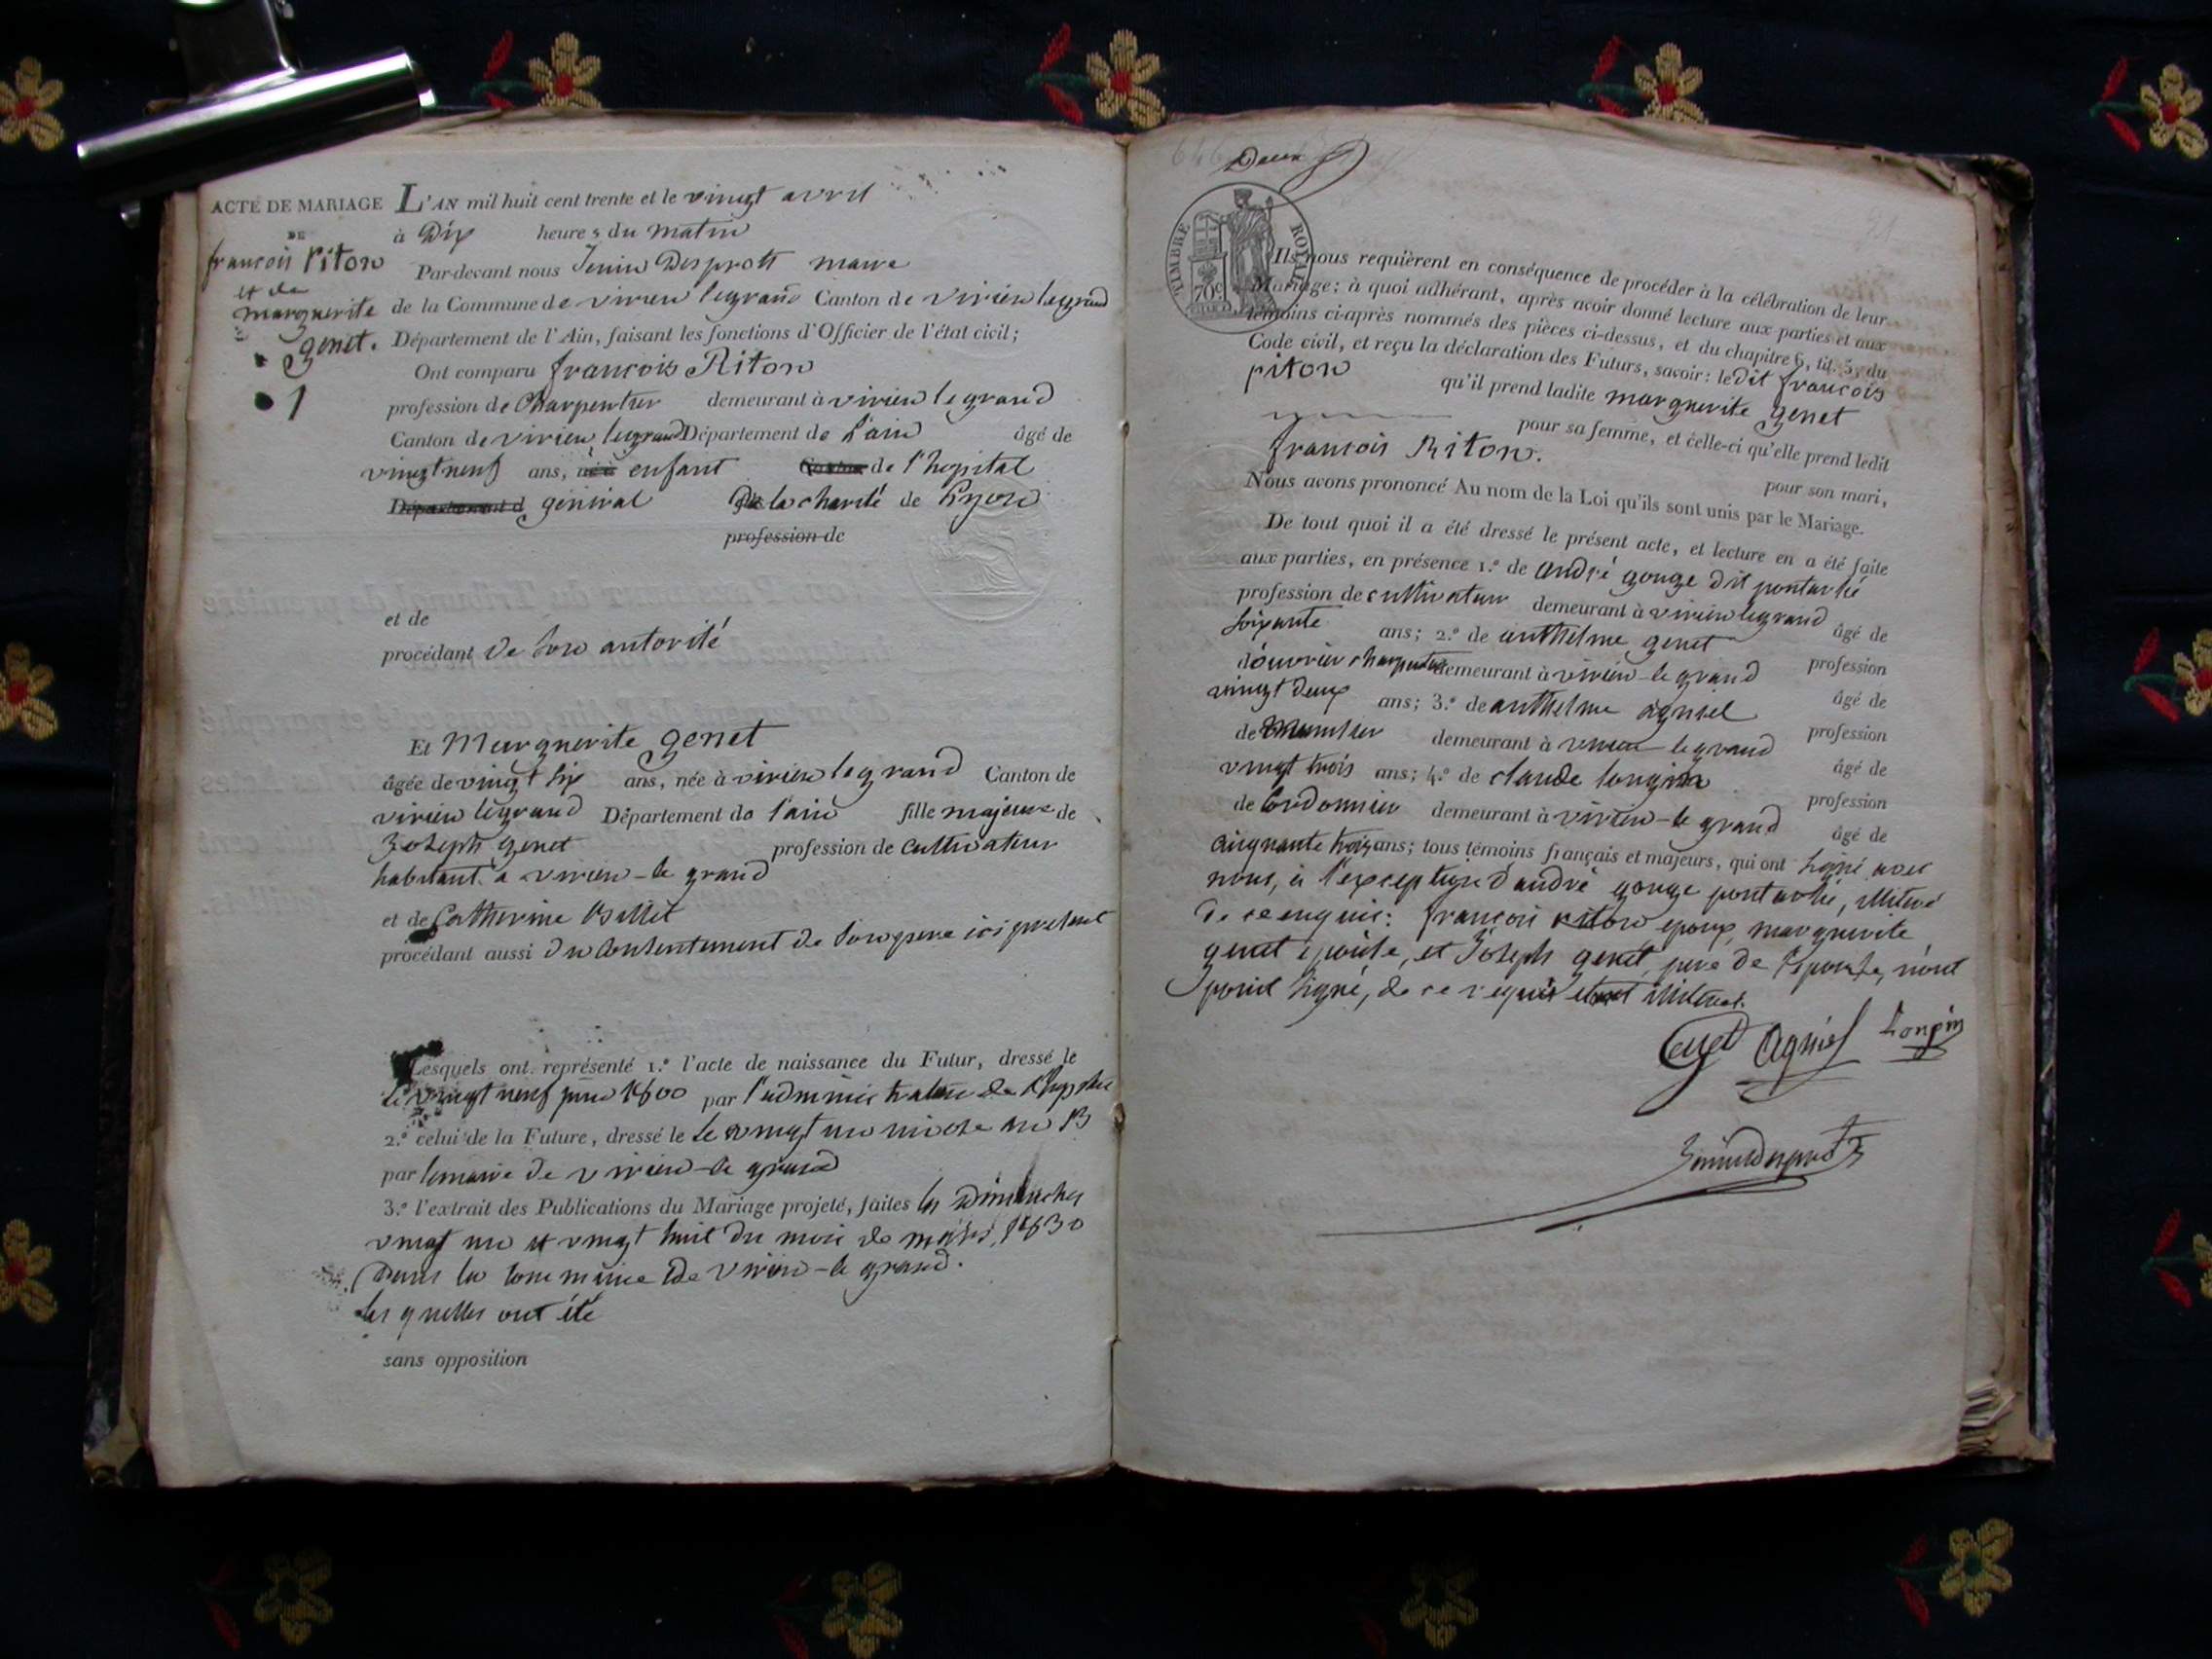 ACTE DE MARIAGE
DE
francois Riton
et de
marguerite
genet.
1
L'AN mil huit cent trente et le vingt avril
à Dix heures du matin
Par-devant nous Jenin Desprott maire
de la Commune de virieu legrand Canton de virieu legrand
Département de l'Ain, faisant les fonctions d'Officier de l'état civil;
Ont comparu francois Riton
profession de Charpentier demeurant à virieu le grand
Canton de virieu legrand Département de l'ain âgé de
vingt neuf ans, né à enfant Canton de l'hopital
Département d général De la charité de Lyon
profession de
et de
procédant de son autorité
Et Marguerite genet
âgée de vingt six ans, née à virieu le grand Canton de
virieu legrand Département de l'ain fille majeure de
Joseph genet profession de cultivateur
habitant à virieu-le grand
et de Catherine
procédant aussi du consentement de son père ici présent
Lesquels ont représenté 1.º l'acte de naissance du Futur, dressé le
le vingt neuf juin 1800 par l'administration de l'hopital
2.º celui de la Future, dressé le le vingt un nivose an 13
par lemaire de virieu-le grand
3.º l'extrait des Publications du Mariage projeté, faites les Dimanches
vingt un et vingt huit du mois de mars, 1830
Dans la commune de virieu-le grand.
les quelles ont été
sans opposition
Deux
TIMBRE ROYAL
70c
Ils nous requièrent en conséquence de procéder à la célébration de leur
Mariage: à quoi adhérant, après avoir donné lecture aux parties et aux
témoins ci-après nommés des pièces ci-dessus, et du chapitre 6, tit. 5, du
Code civil, et reçu la déclaration des Futurs, savoir: le Dit francois
riton qu'il prend ladite marguerite genet
pour sa femme, et celle-ci qu'elle prend ledit
francois Riton. pour son mari,
Nous avons prononcé Au nom de la Loi qu'ils sont unis par le Mariage.
De tout quoi il a été dressé le présent acte, et lecture en a été faite
aux parties, en présence 1.º de andré gouge dit pontarlié
profession de cultivateur demeurant à virieu legrand âgé de
soixante ans; 2.º de anthelme genet profession
d'ouvrier charpentier demeurant à virieu-le grand âgé de
vingt deux ans; 3.º de anthelme agniel profession
de Menusier demeurant à virieu le grand âgé de
vingt trois ans; 4.º de claude longin profession
de Cordonnier demeurant à virieu-le grand âgé de
cinquante trois ans; tous témoins français et majeurs, qui ont signé avec
nous, à l'exception d'andré gouge pontarlié, illiteré
de ce enquis: francois riton epoux, marguerite
genet épouse, et Joseph genet, père de l'épouse, n'ont
point signé, de ce requis etant illiterés.
Genet Agniel Longin
Jenin Desprott